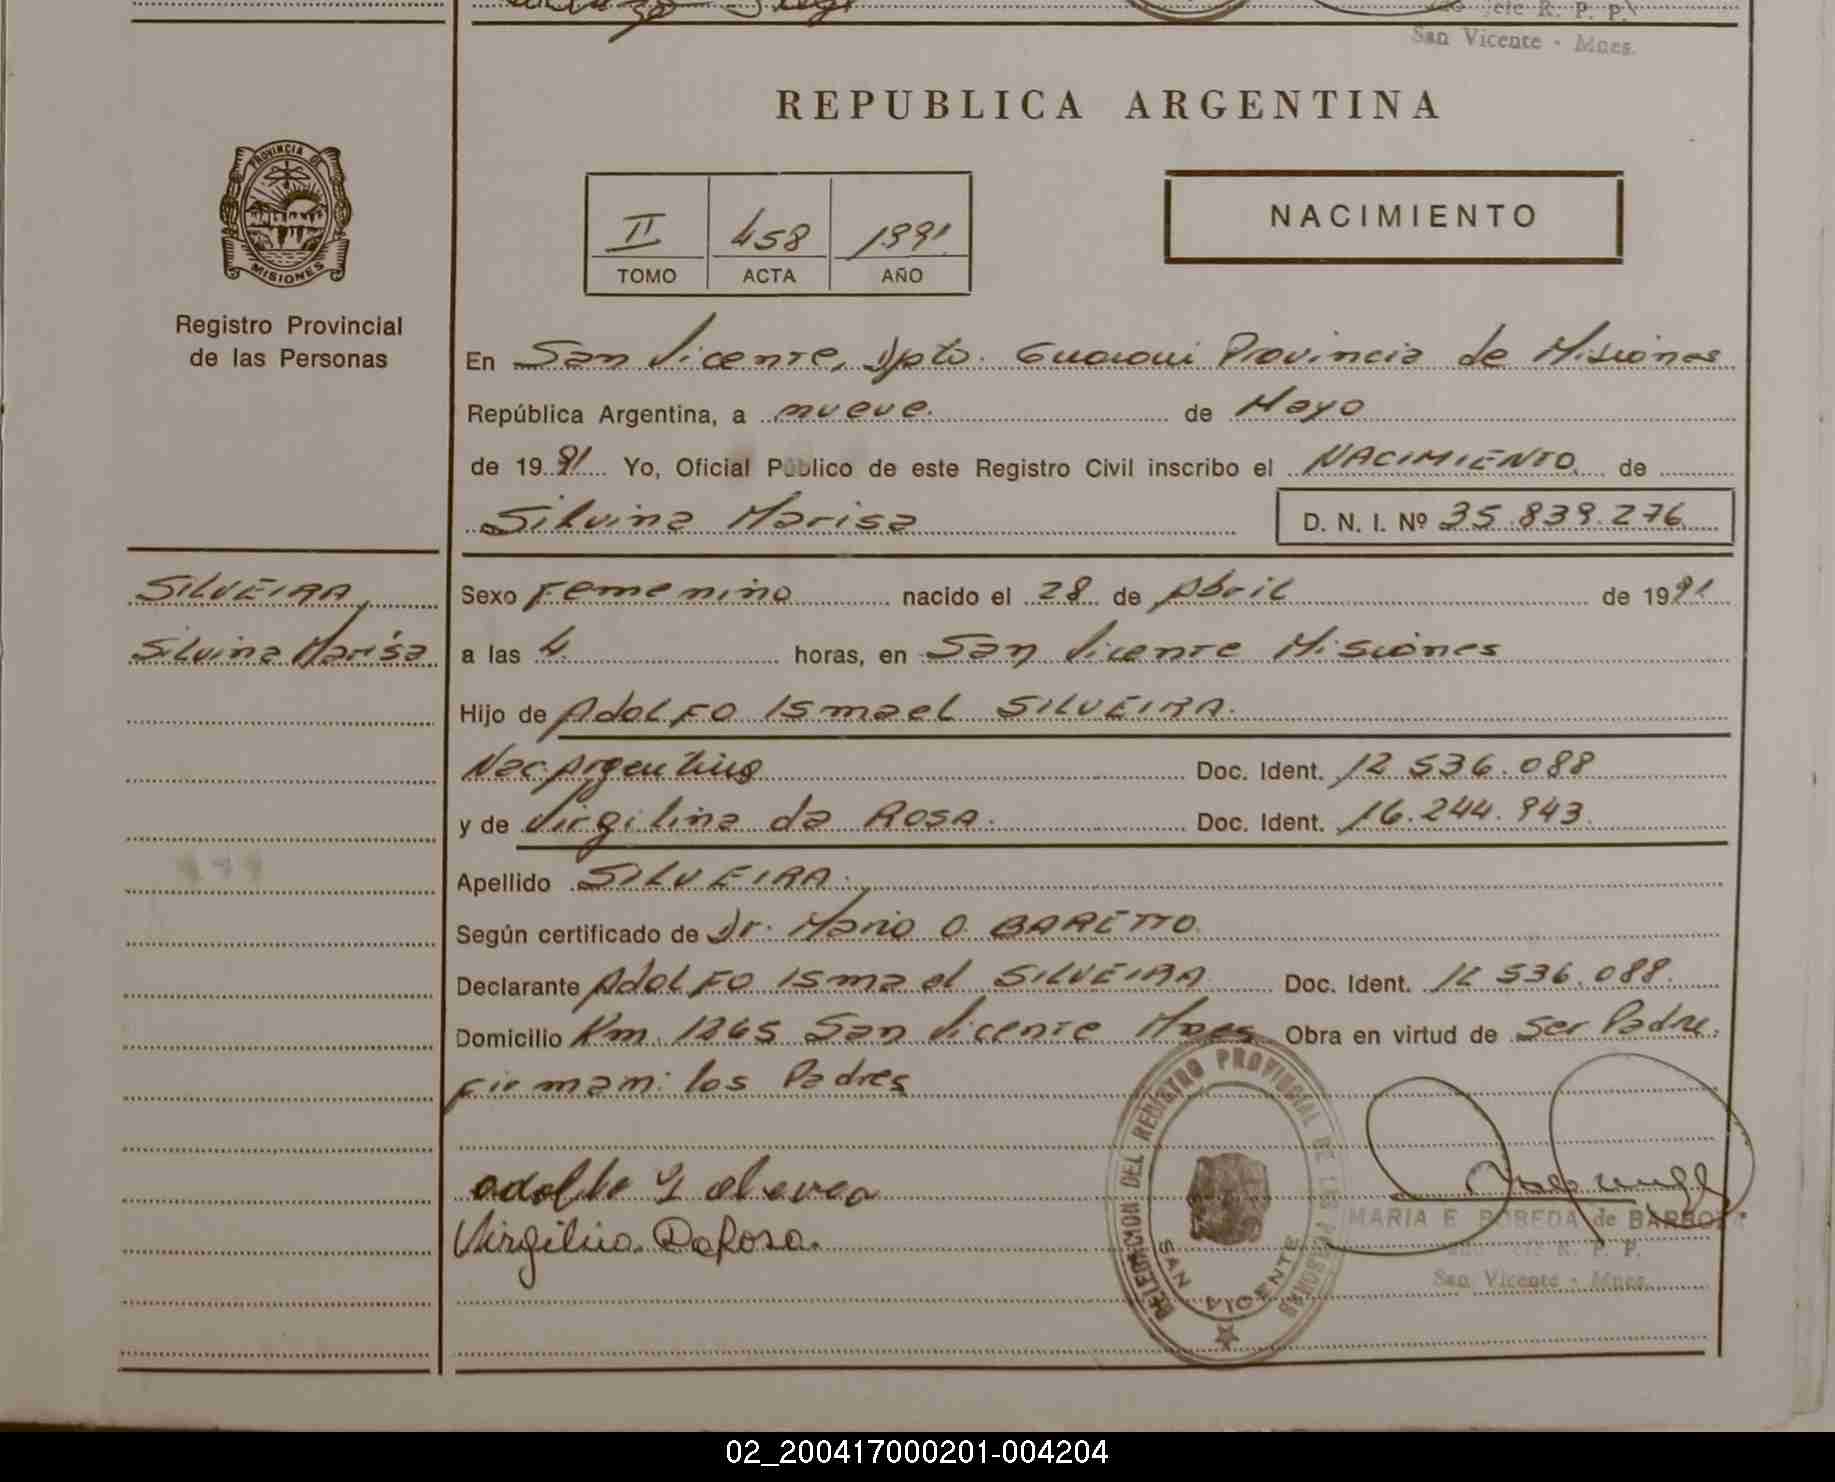 cje R. P. P.
San Vicente - Mnes.
REPUBLICA ARGENTINA
PROVINCIA DE
MISIONES
Registro Provincial
de las Personas
II 458 1991
TOMO ACTA AÑO
NACIMIENTO
En San Vicente, Dpto. Guarani Provincia de Misiones
República Argentina, a nueve de Mayo
de 1991 Yo, Oficial Público de este Registro Civil inscribo el NACIMIENTO de
Silvina Marisa D. N. I. Nº 35.839.276
SILVEIRA,
Silvina Marisa
Sexo Femenino nacido el 28 de Abril de 1991
a las 4 horas, en San Vicente Misiones
Hijo de ADOLFO ISmael SILVEIRA.
Nac Argentino Doc. Ident. 12 536.088
y de Virgilina da ROSA. Doc. Ident. 16.244.943.
Apellido SILVEIRA.
Según certificado de Dr. Mario O. BARETTO.
Declarante ADOLFO ISmael SILVEIRA Doc. Ident. 12 536.088.
Domicilio Km. 1265 San Vicente Mnes Obra en virtud de Ser Padre.
Firman: los Padres
DELEGACION DEL REGISTRO PROVINCIAL DE LAS PERSONAS
SAN VICENTE
Virgilina DaRosa.
MARIA E. BOBEDA de BARBOZA
R. P. P.
San Vicente - Mnes.
02_200417000201-004204